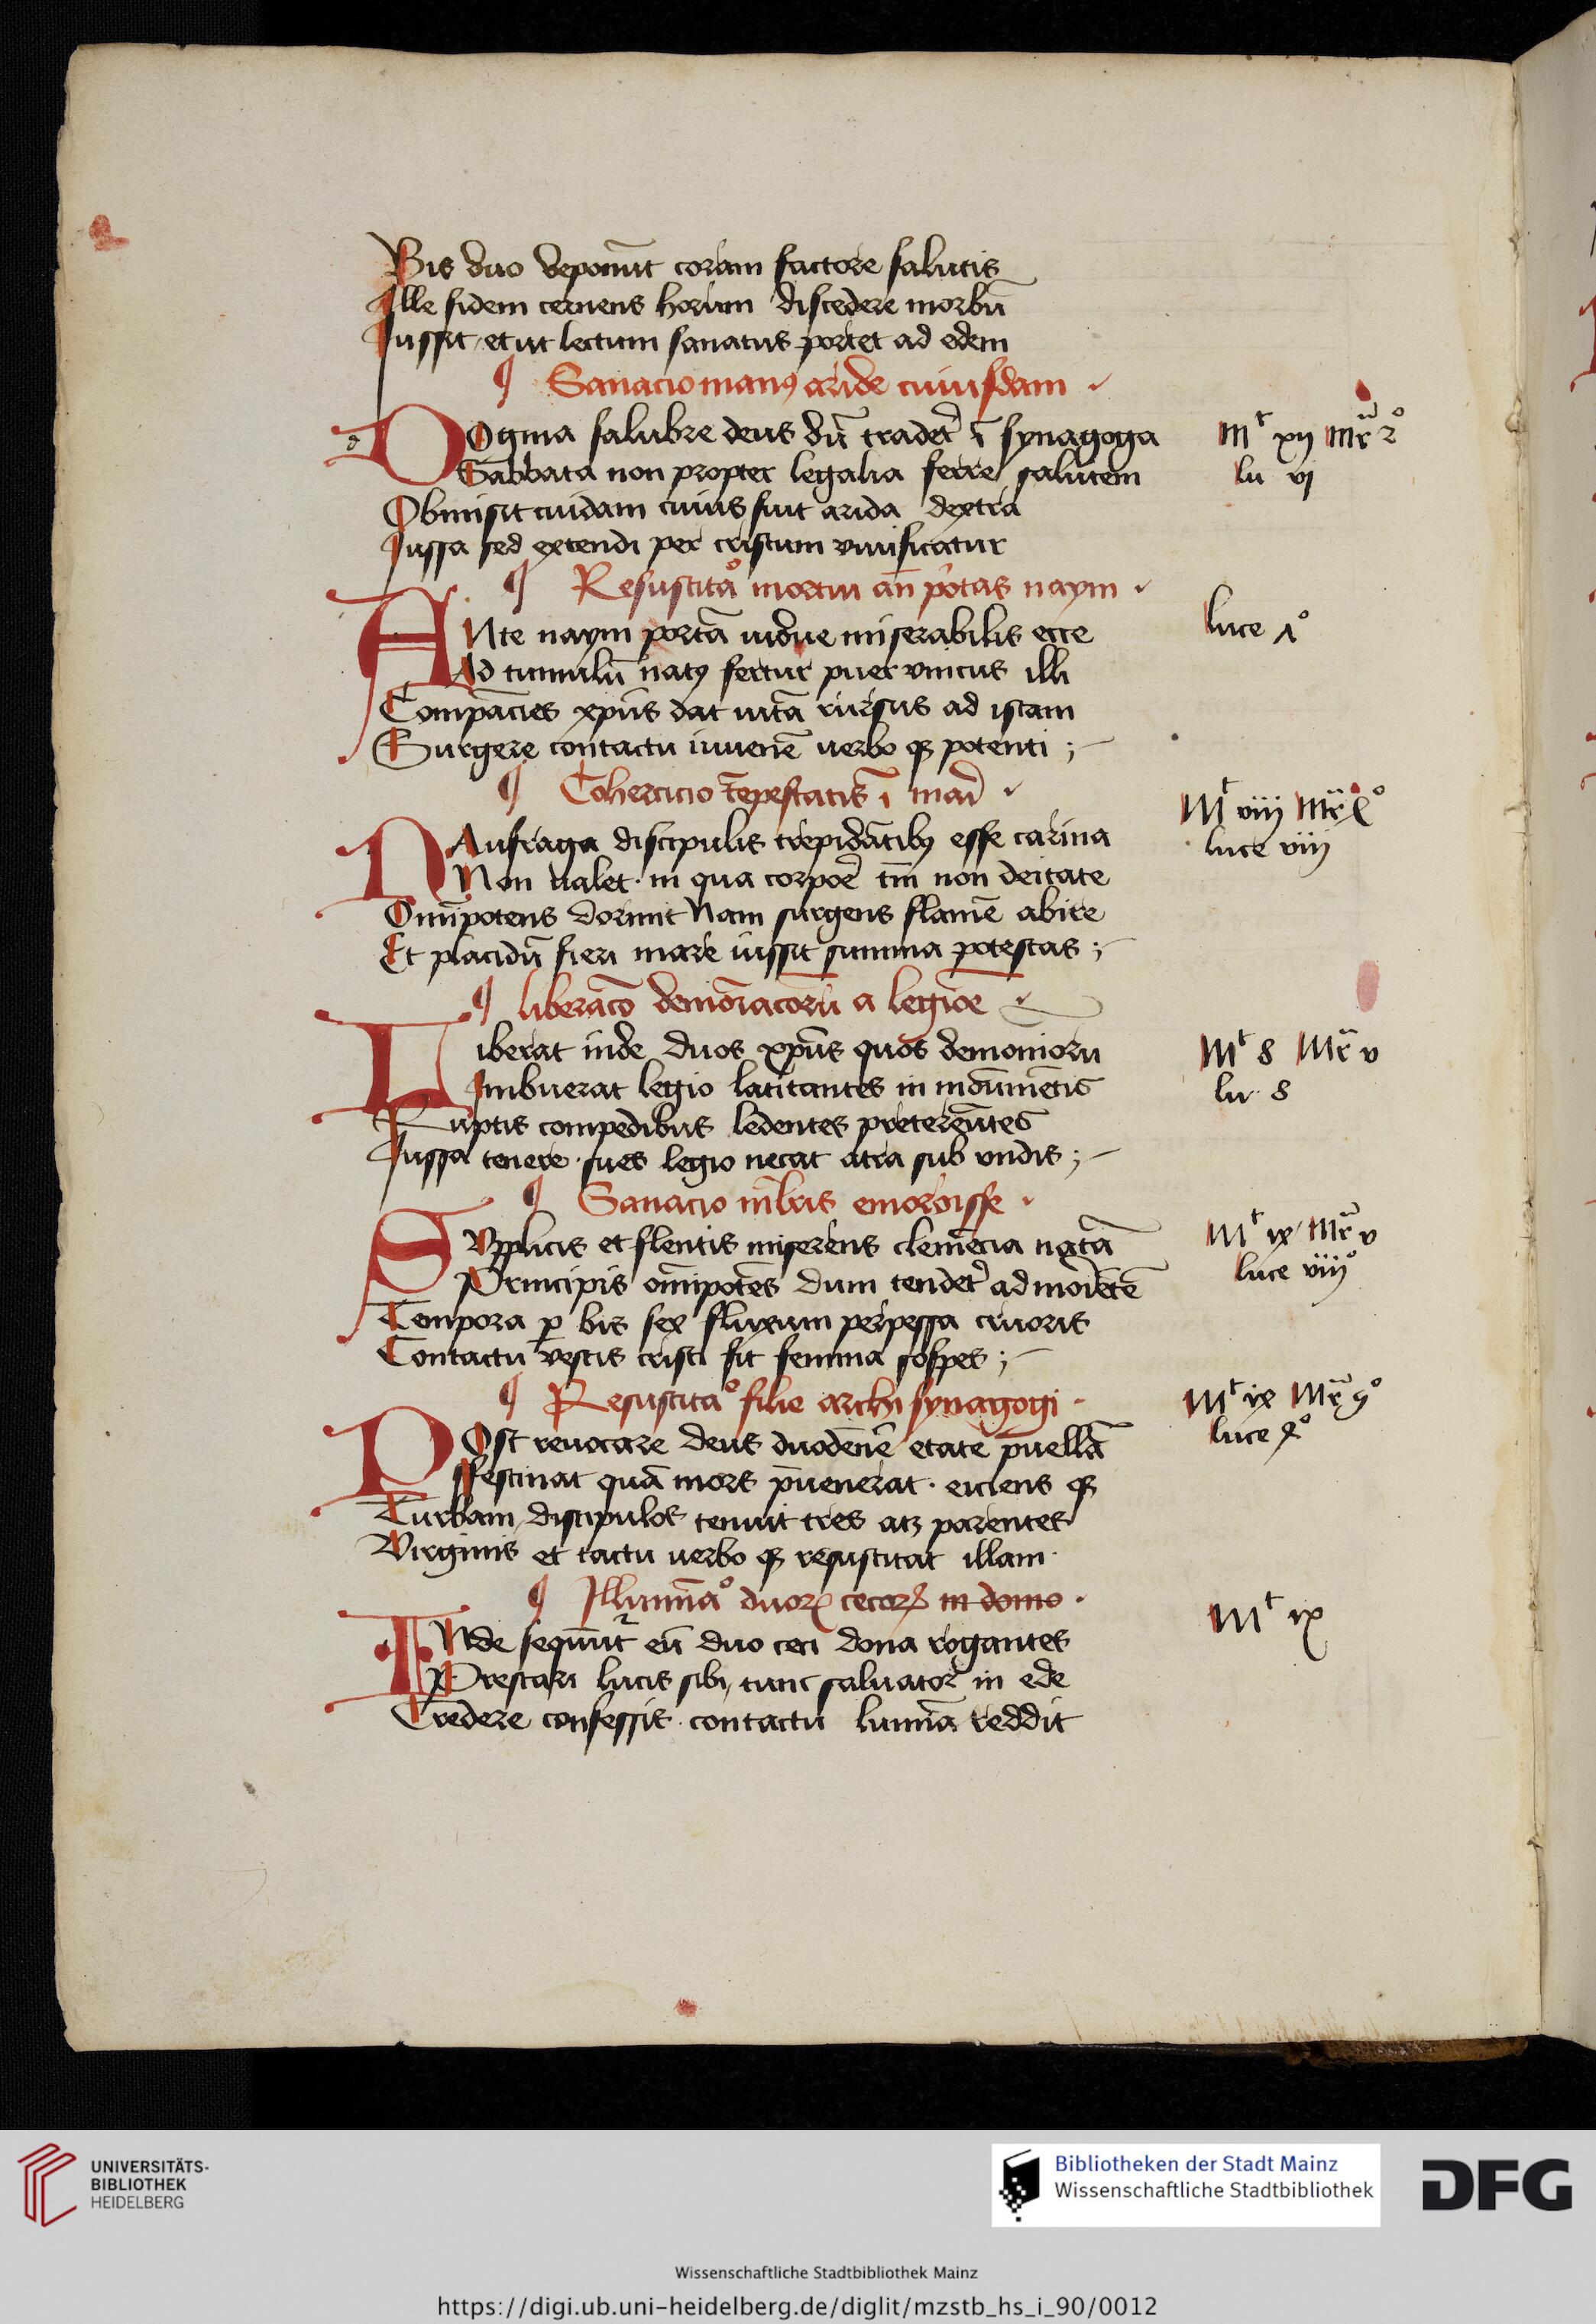 Bis duo deponūt coram factore salutis
Ille fidem cernens horum discedere morbū
Iussit / et ut lectum sanatus portet ad edem
¶ Sanacio manꝯ aride cuiusdam
DOgma salubre deus dū tradet᷑ ī synagoga
Mᵗ xij Mr̄ 2°
Sabbata non propter legalia ferre salutem
lu vj
Obmisit cuidam cuius fuit arida dextra
Iussa sed extendi per cristum viuificatur
¶ Resuscita° mortui an̄ portas naym
ANte naym portā vidue miserabilis ecce
luce
Ad tumulū natꝯ fertur puer vnicus illi
Compaciēs xp̄us dat vitā rursus ad istam
Surgere contactu iuuenē verbo qꝫ potenti ;
¶ Cohercicio tēpestatis ī mari
Mᵗ viij Mr̄
NAufraga discipulis trepidātibꝯ esse carina
luce viij
Non valet · in qua corpoē tm̄ non deitate
Omīpotens dormit Nam surgens flamē abire
Et placidū fieri mare iussit summa potestas ;
¶ liberaco demoniacorū a legioē
Liberat inde duos xp̄us quos demoniorū
Mᵗ 8 Mr̄ v
Imbuerat legio latitantes in mōumētis
lu · 8
Ruptis compedibus ledentes pretereūtes
Iussa tenere · sues legio necat atra sub vndis ;
¶ Sanacio ml̄ris emoroisse ·
SVpplicis et flentis miserens clemēcia natā
Mᵗ ix / Mr̄ v
Principis om̄ipotēs dum tendet᷑ ad moriētē
luce viij°
Tempora ꝑ bis sex fluxum perpessa cruoris
Contactu vestis cristi fit femina sospes ;
¶ Resuscita° filie archi synagogi ·
Mᵗ ix Mr̄
POst reuocare deus duodene etate puellā
luce
ffestinat quā mors p̄uenerat · eiciens qꝫ
Turbam / discipulos tenuit tres atꝫ parentes
Virginis et tactu verbo qꝫ resuscitat illam ·
¶ Illumina° duorꝝ cecorꝝ in domo ·
INde sequūt᷑ eū duo ceci dona rogantes
Mᵗ ix
Prestari lucis sibi / tunc saluator in ede
Credere confessis · contactu lumīa reddit
UNIVERSITÄTS-
BIBLIOTHEK
HEIDELBERG
Bibliotheken der Stadt Mainz
Wissenschaftliche Stadtbibliothek
DFG
Wissenschaftliche Stadtbibliothek Mainz
https://digi.ub.uni-heidelberg.de/diglit/mzstb_hs_i_90/0012